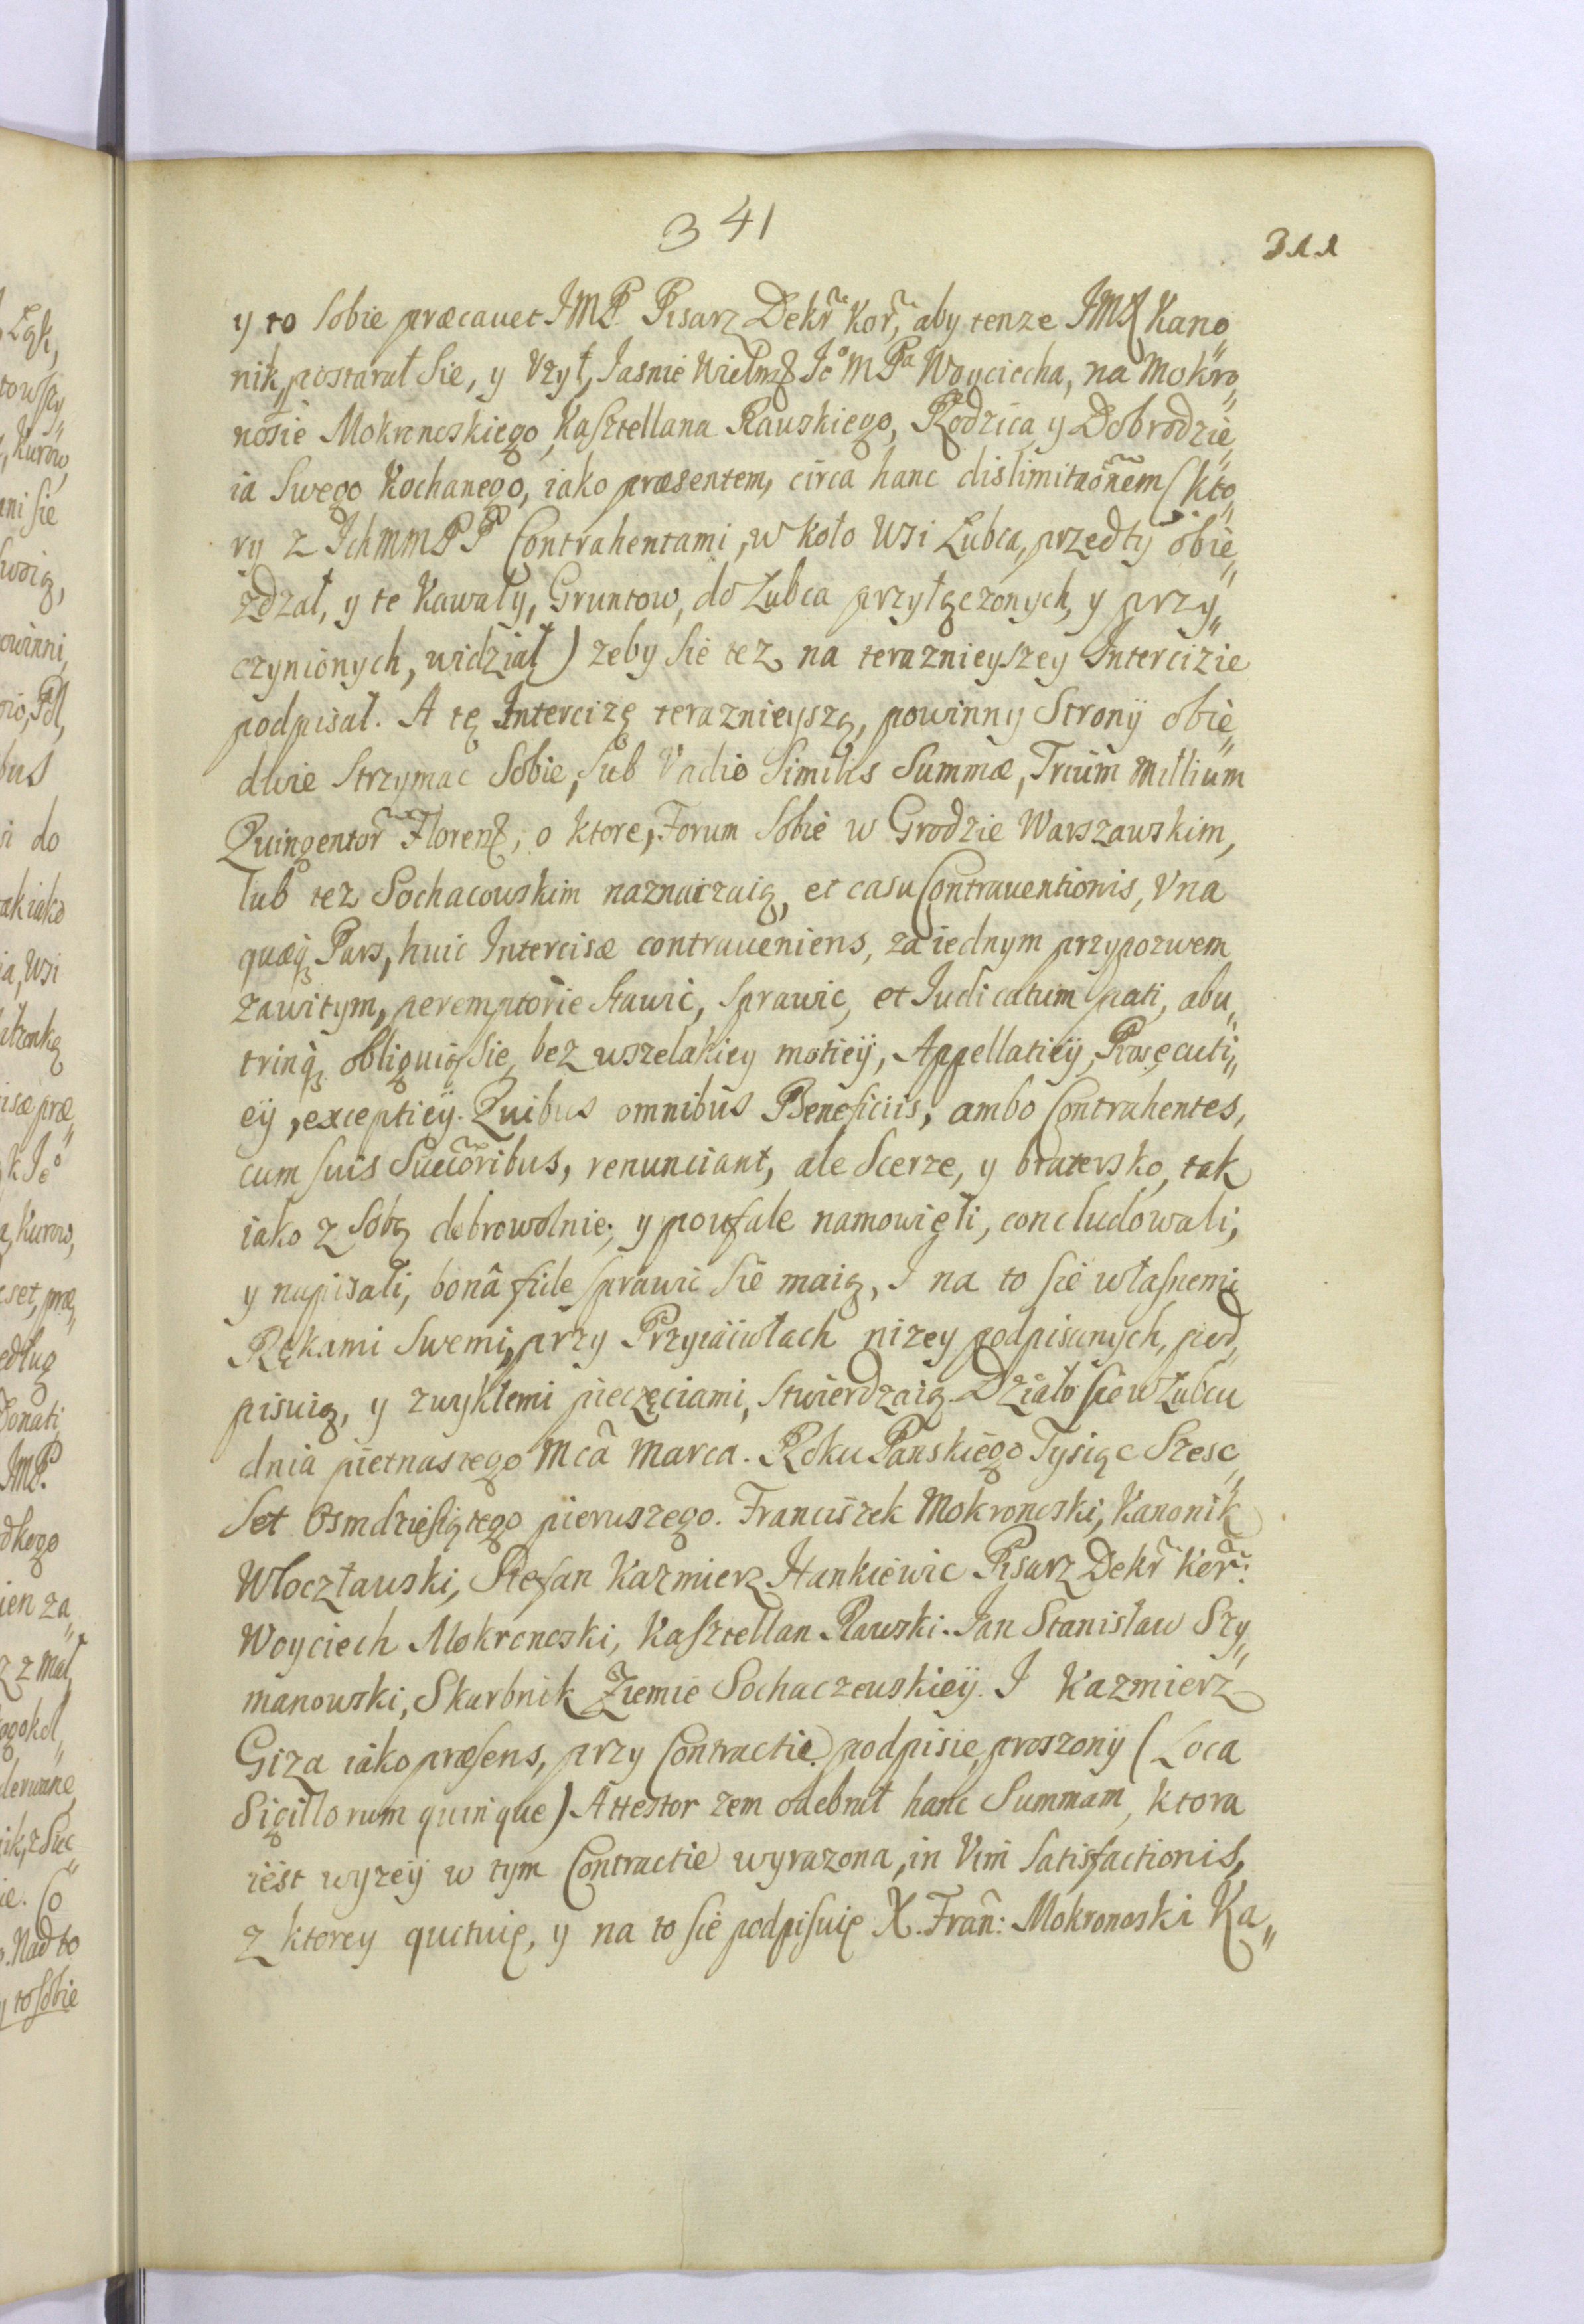 341
311
y to Sobie præcavet JMP. Pisarz Dekr̃ Kor̃, aby tenze JMX Kano„
nik, postarał Sie, y Vzył, Jasnie Wielmoz̃ Je͂o MPa Woyciecha, na Mokro„
nosie Mokronoskiego, Kasztellana Rawskiego, Rodzica y Dobrodzie„
ia Swego Kochanego, iako præsentem, circa hanc dislimitaõnem (kto„
ry z IchMmPP Contrahentami, w koło Wsi Łubca, przedty obie„
zdzał, y te Kawały, Gruntow, do Łubca przyłączonych, y przy„
czynionych, widział) zeby Sie tez na teraznieyszey Intercizie
podpisał. A tę Intercizę teraznieyszą, powinny Strony obie„
dwie Strzymac Sobie, Sub Vadio Similis Summæ, Trium Millium
Quingentor̃ Floren͂, o ktore, Forum Sobie w Grodzie Warszawskim,
lub tez Sochacowskim naznaczaią, et casu Contrauentionis, Vna
quæq Pars, huic Intercisæ contraueniens, za iednym przypozwem
zawitym, peremptorie Stawic, Sprawic, et Judicatum pati, abu„
trinq obliguią Sie, bez wszelakiey motiey, Appellatiey, Prosecuti„
ey, exceptiey. Quibus omnibus Beneficiis, ambo Contrahentes,
cum suis Succõribus, renunciant, ale Scerze, y bratersko, tak
iako z Sobą dobrowolnie, y poufale namowięli, concludowali,
y napisali, bonâ fide sprawic Sie maią, I na to sie własnemi
Rękami Swemi, przy Przyiaciołach nizey podpisanych, pod„
pisuią, y zwykłemi pieczęciami, Stwierdzaią. Działo sie w Łubcu
dnia pietnastego Mc̃a Marca. Roku Panskiego Tysiąc Szesc„
Set Osmdziesiątego pierwszego. Franciszek Mokronoski, Kanonik
Włocztawski, Stefan Kazmierz Hankiewic Pisarz Dekr̃ Kor̃:
Woyciech Mokronoski, Kasztellan Rawski. Jan Stanisław Szy„
manowski, Skarbnik Ziemie Sochaczewskiey. I Kazmierz
Giza iako præsens, przy Contractie podpisie, proszony (Loca
Sigillorum quinque) Attestor zem odebrał hanc Summam, ktora
iest wyzey w tym Contractie wyrazona, in Vim Satisfactionis,
z ktorey quctuię, y na to sie podpisuię X. Frañ: Mokronoski Ka„